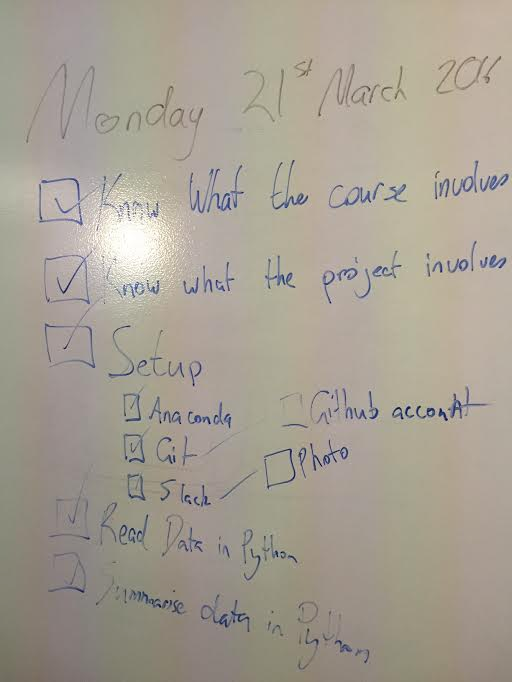 Monday 21st March 2016
Know What the course involves
Know what the project involves
Setup
Anaconda
Github account
Git
Photo
Slack
Read Data in Python
Summarise data in Python